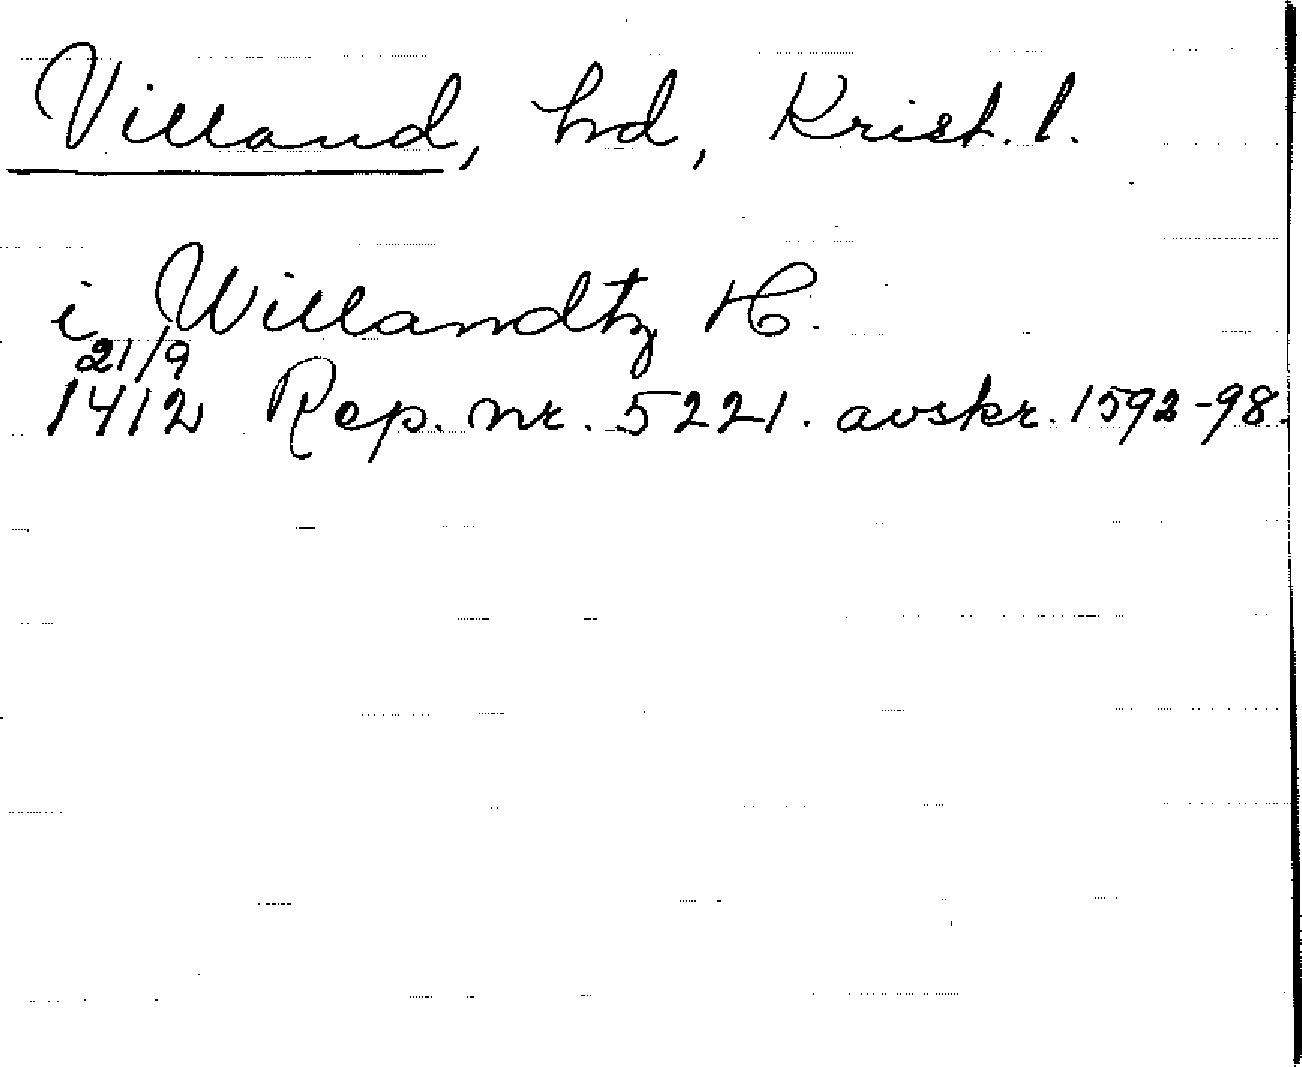 Villand, hd, Krist. l.
i Willandtz H.
21/9
1412 Rep. nr. 5221. avskr. 1592-98.